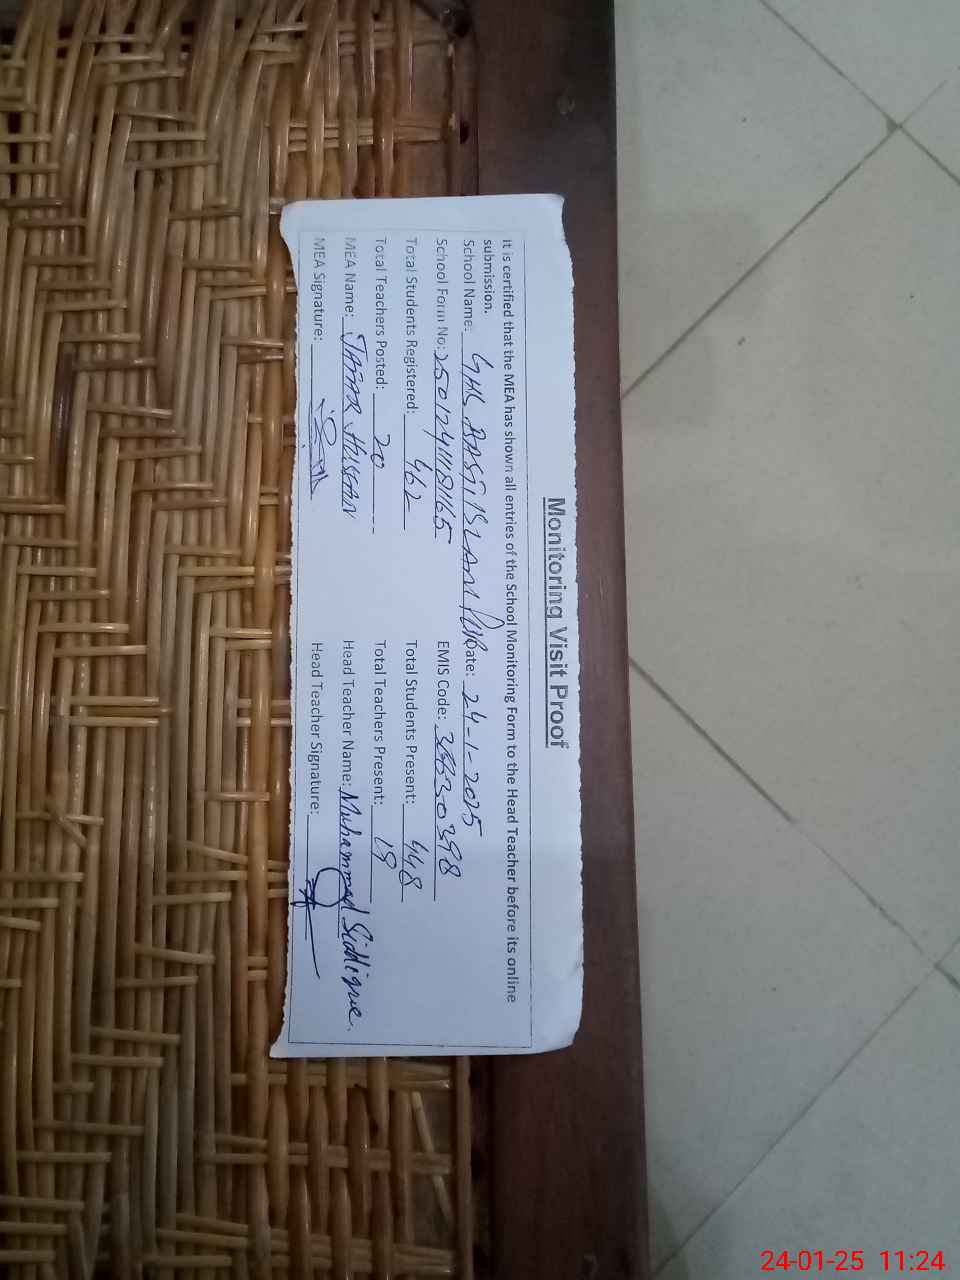 Monitoring Visit Proof
It is certified that the MEA has shown all entries of the School Monitoring Form to the Head Teacher before its online
submission.
School Name: GHS BASTI ISLAM Date: 24-1-2025
School Form No: EMIS Code:
Total Students Registered: 462 Total Students Present: 448
Total Teachers Posted: 20 Total Teachers Present: 19
MEA Name: JAFAR HUSSAN Head Teacher Name: Muhammad Siddique.
MEA Signature: Head Teacher Signature:
24-01-25 11:24